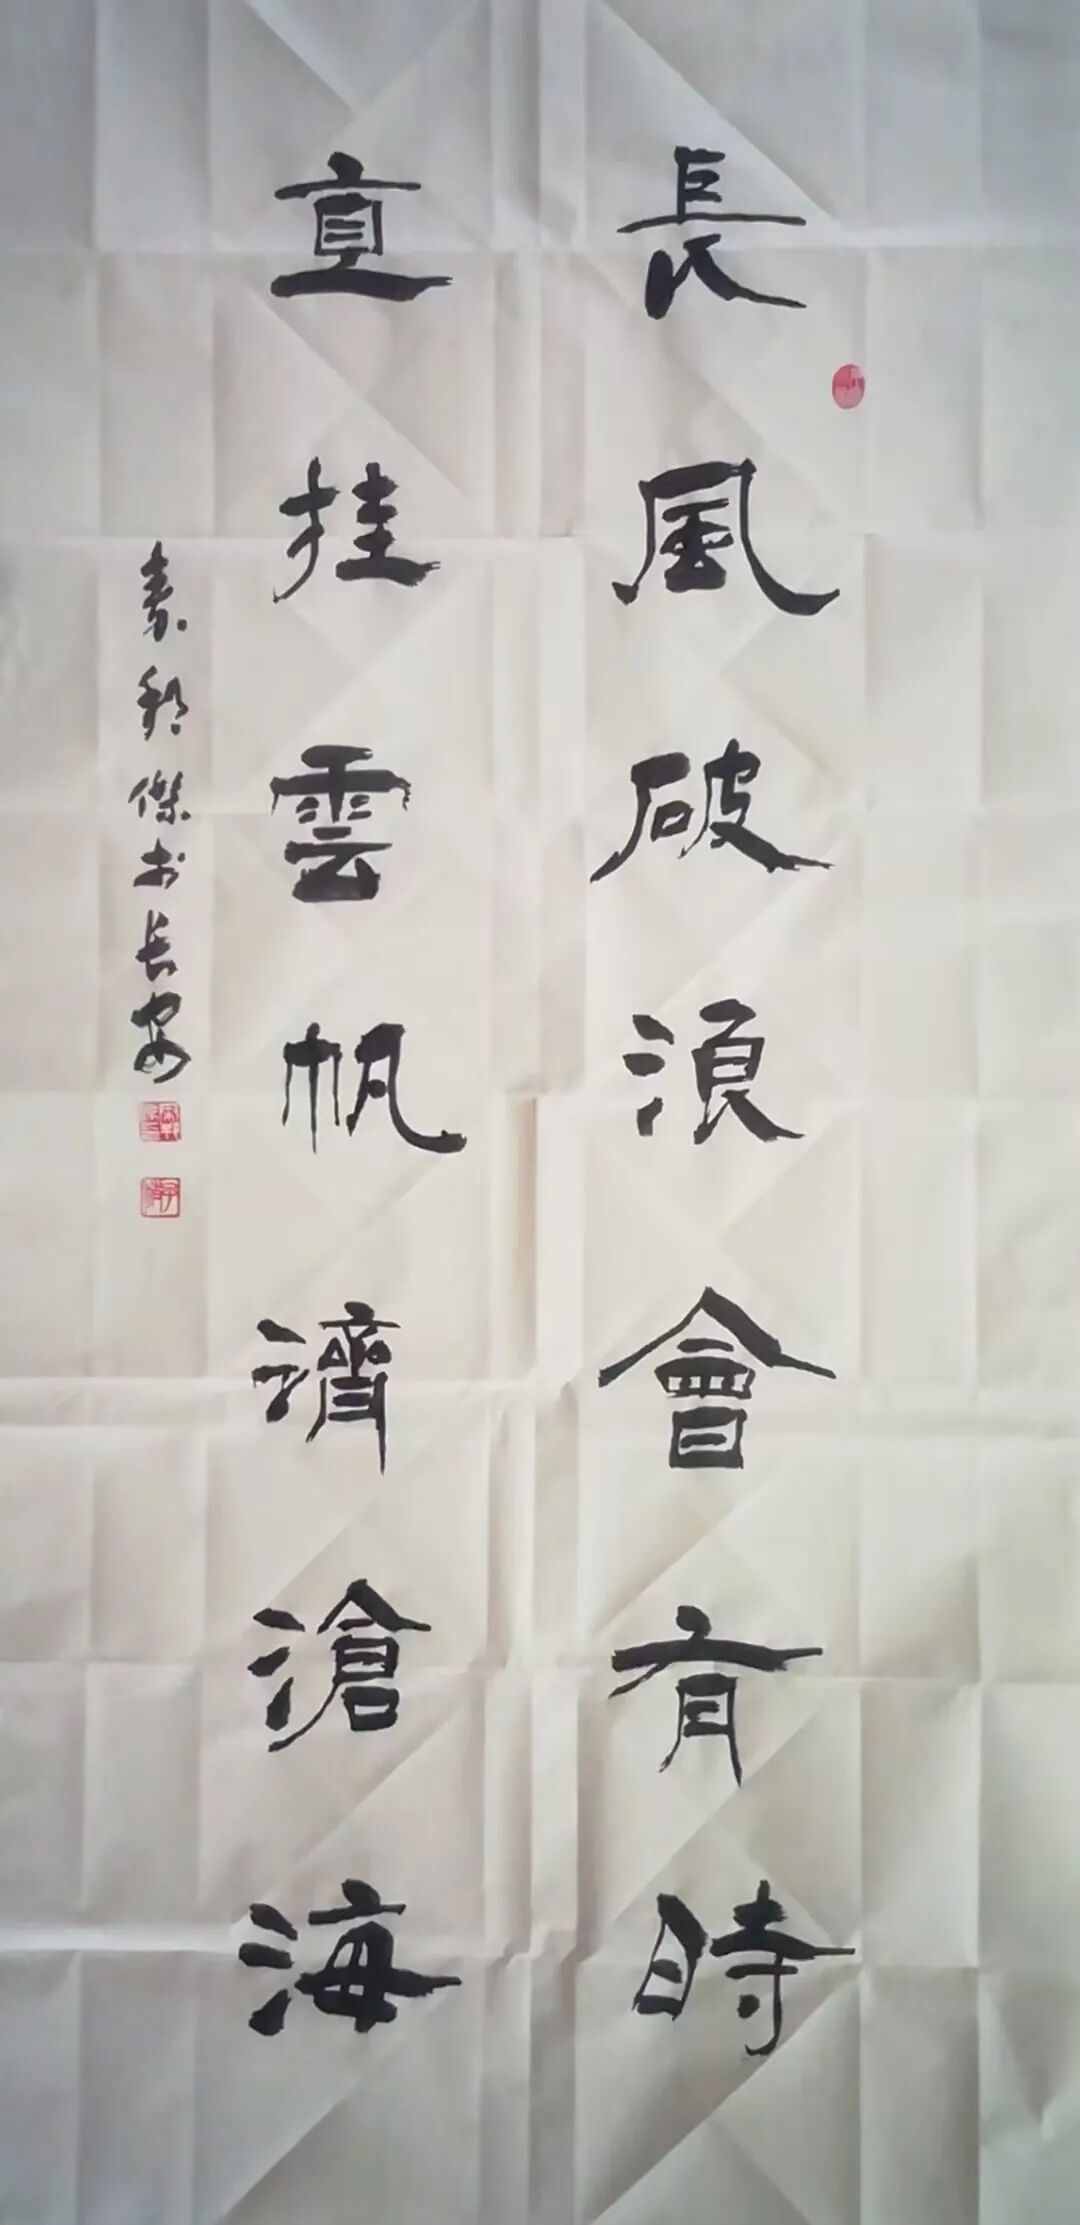 長風破浪會有時
直挂雲帆濟滄海
傑书长安